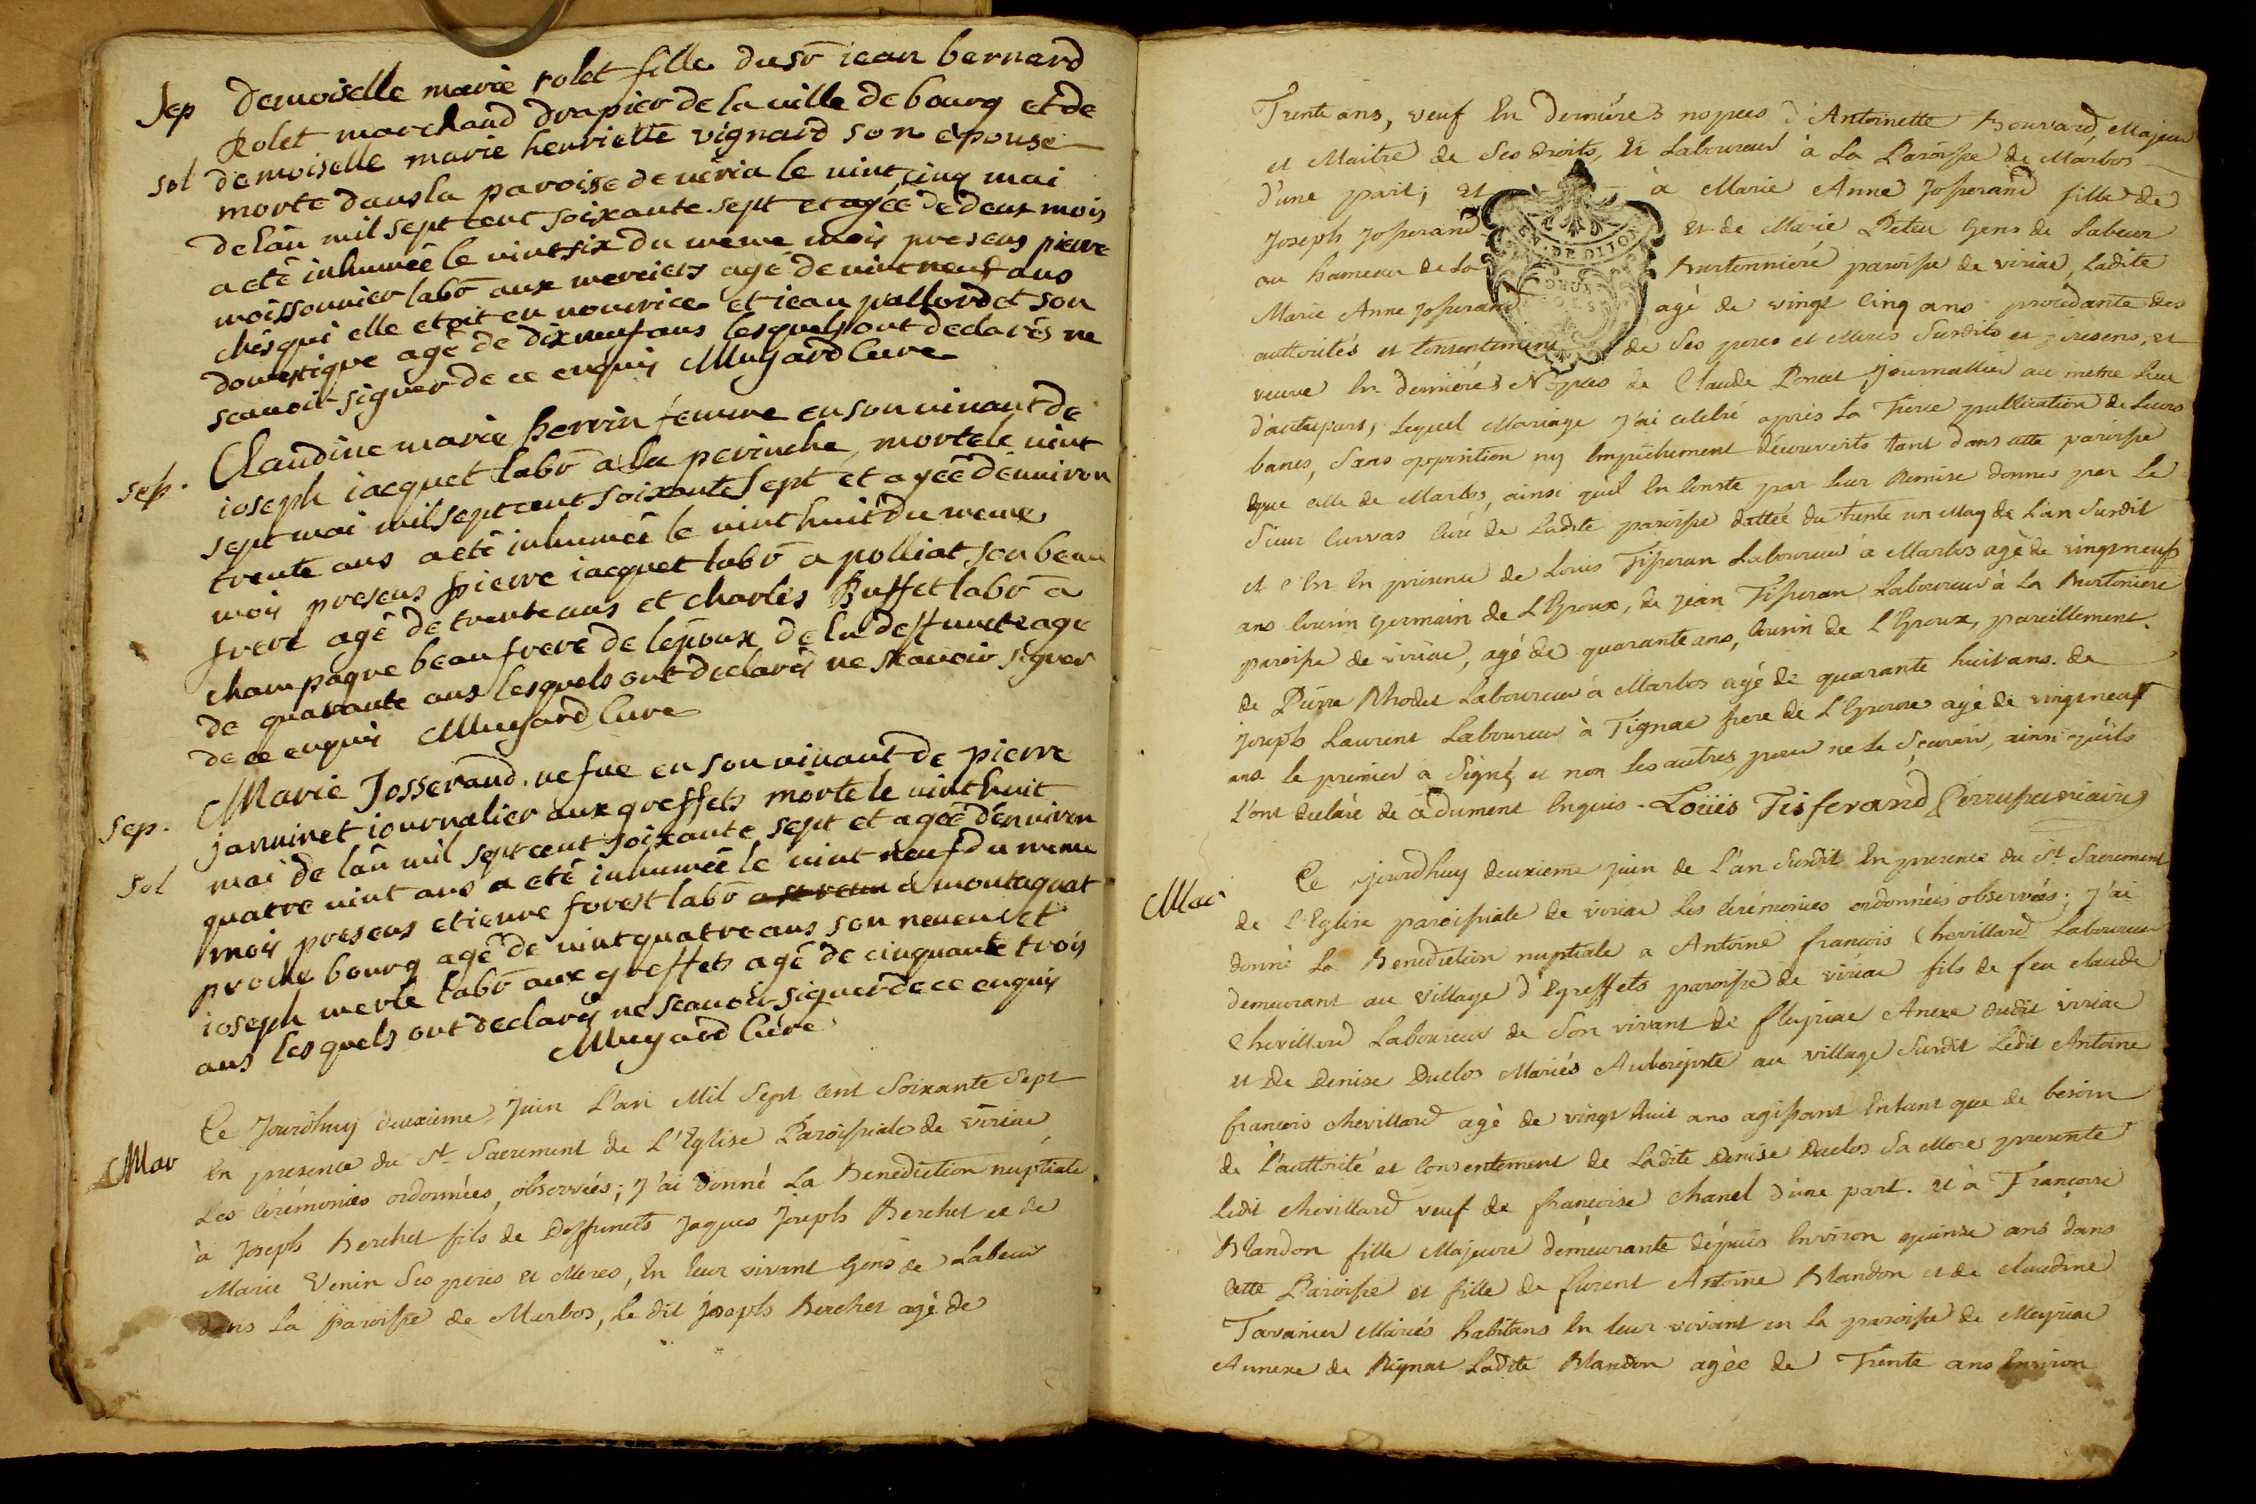 Sep demoiselle marie rolet fille du sr iean bernard
Rolet marchand drapier de la ville de bourg et de
sol demoiselle marie henriette vignard son epouse
morte dans la paroisse de veria le vint cinq mai
de lân mil sept cent soixante sept et agée de deux mois
a eté inhumée le vint six du meme mois presens pierre
moissonnier labr aux merciers agé de vint neuf ans
chés qui elle etoit en nourrice et iean pallordet son
domestique agé de dix neuf ans lesquels ont declarés ne
scauoir signer de ce enquis Mugard Cure
sep. Claudine marie perrin femme en son viuant de
ioseph iacquet labr a la peruche morte le vint
sept mai mil sept cent soixante sept et agée d'enuiron
trente ans a eté inhumée le vint huit du meme
mois presens pierre iacquet labr a polliat son beau
frere agé de trente ans et charles Buffet labr a
champagne beaufrere de l'epoux de la deffuncte agé
de quarante ans lesquels ont declarés ne scauoir signer
de ce enquis Mugard Cure
sep. Marie Josserand vefue en son viuant de pierre
januinet iournalier aux greffets morte le vint huit
sol mai de lân mil sept cent soixante sept et agée d'enuiron
quatre vint ans a eté inhumée le vint neuf du meme
mois presens etienne forest labr a montagnat
proche bourg agé de vint quatre ans son neueu et
ioseph merle labr aux greffets agé de cinquante trois
ans lesquels ont declarés ne scauoir signer de ce enquis
Mugard Cure
Ce Jourdhuy deuxieme Juin L'an Mil Sept Cent Soixante Sept
Mar En presence du St Sacrement de L'Eglise Paroissiale de Viriac
Les Cérémonies ordonnées, observées; J'ai donné La Benediction nuptiale
à Joseph Berchet fils de Deffuncts Jaques Joseph Berchet et de
Marie Venin Ses peres et Meres, En leur vivant Gens de Labeur
dans La paroisse de Marbos, le dit Joseph Berchet agé de
Trente ans, veuf En Derniéres nopces d'Antoinette Bouvard, Majeur
et Maitre de Ses droits, Et Laboureur à La Paroisse de Marbos
d'une part; Et à Marie Anne Josserand fille de
Joseph Josserand Et de Marie Peteu Gens de Labeur
au hameau de La Burtonniéré paroisse de viriac, Ladite
Marie Anne Josserand agé de vingt Cinq ans procedante des
authorités et Consentement de Ses peres et Meres Susdits et presens, et
veuve En derniéres Nopces de Claude Poncet Journallier au metre lieu
d'autre part, Lequel Mariage J'ai celebré après La Troise publication de Leurs
bancs, Sans opposition ny Empéchement découverts tant dans cette paroisse
que celle de Marbos, ainsi qu'il En Conste par leur Remise donné par Le
Sieur Curvas Curé de Ladite paroisse dattée du trente un May de L'an Susdit
et En presence de Louis Tisseran Laboureur à Marbos agé de vingtneuf
ans Cousin Germain de L'Epoux, de Jean Tisseran Laboureur à La Burtoniere
paroisse de viriac, agé de quarante ans, Cousin de L'Epoux, pareillement
de Pierre Rhodet Laboureur à Marbos agé de quarante huit ans. de
Joseph Laurent Laboureur à Tignac frere de L'Epouse agé de vingtneuf
ans le premier a Signé, et non les autres pour ne le Scavoir, ainsi qu'ils
l'ont déclaré de ce dument Enquis. Loüis Tisserand
Mar Ce Jourdhuy deuxieme Juin de L'an Susdit En presence du St Sacrement
de L'Eglise paroissiale de viriac Les Cérémonies ordonnées observées; J'ai
donné La Benediction nuptiale a Antoine francois Chevillard Laboureur
demeurant au Village d'Egreffets paroisse de viriac fils de feu Claude
Chevillard Laboureur de Son vivant de fleyriac Anexe dudit viriac
et De Denise Duclos Mariés Aubergiste au village Susdit Ledit Antoine
francois chevillard agé de vingt huit ans agissant Entant que de besoin
de L'authorité et Consentement de Ladite Denise Duclos Sa Mere presente
ledit Chevillard veuf de francoise Chanel d'une part. et à Francoise
Blandon fille Majeure demeurante depuis Environ quinze ans dans
cette Paroisse et fille de furent Antoine Blandon et de Claudine
Tavanier Mariés habitans En leur vivant en la paroisse de Meyriac
Annexe de Rignat Ladite Blandon agée de Trente ans Environ